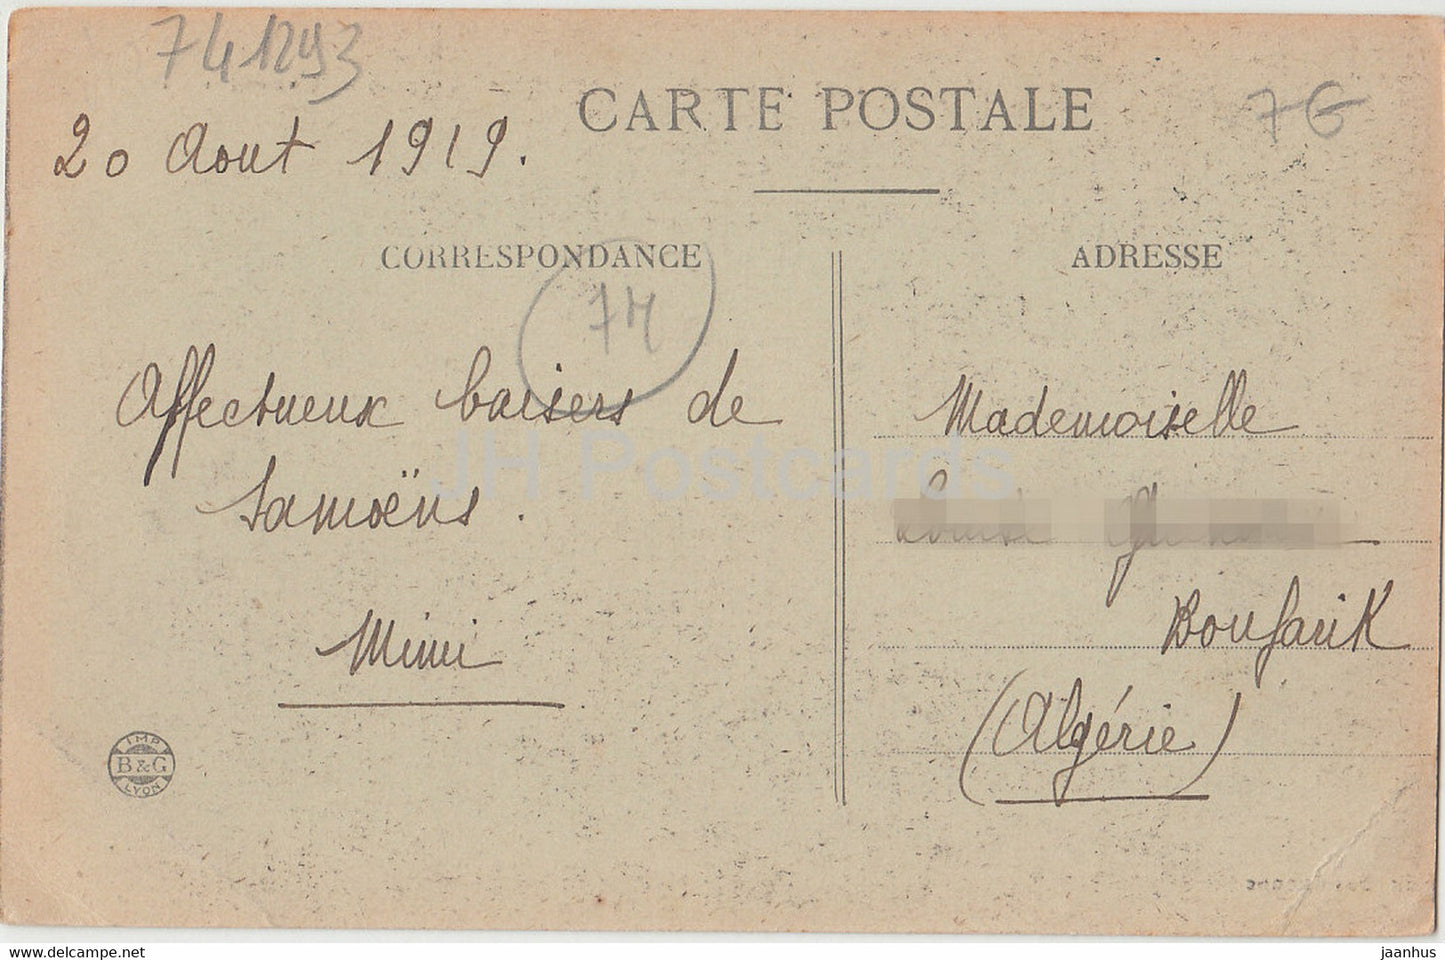 741293
20 Aout 1919.
CARTE POSTALE
76
CORRESPONDANCE
74
Affectueux baisers de
Samoëns.
Mimi
IMP
B & G
LYON
ADRESSE
Mademoiselle
Louise
Boufarik
(Algérie)
JH Postcards
www.delcampe.net
jaanhus